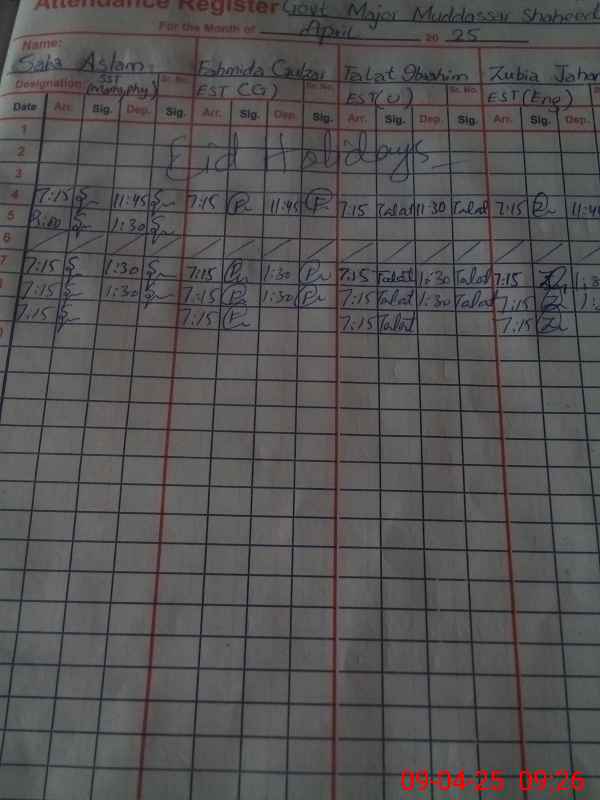 Attendance Register Govt Major Muddassar Shaheed
For the Month of April 20 25
Name:
Saba Aslam Fahmida Gulzar Talat Ibrahim Zubia Jahan
Designation: SST (Math, phy) Sr. No. EST (G) Sr. No. EST(U) Sr. No. EST (Eng)
Date Arr. Sig. Dep. Sig. Arr. Sig. Dep. Sig. Arr. Sig. Dep. Sig. Arr. Sig. Dep.
1
2 Eid Holidays
3
4 7:15 11:45 7:15 11:45 7:15 Talat 11:30 Talat 7:15 11:4
5 8:00 1:30
6
7 7:15 1:30 7:15 1:30 7:15 Talat 1:30 Talat 7:15 1:3
7:15 1:30 7:15 1:30 7:15 Talat 1:30 Talat 7:15 1:
7:15 7:15 7:15 Talat 7:15
09-04-25 09:26